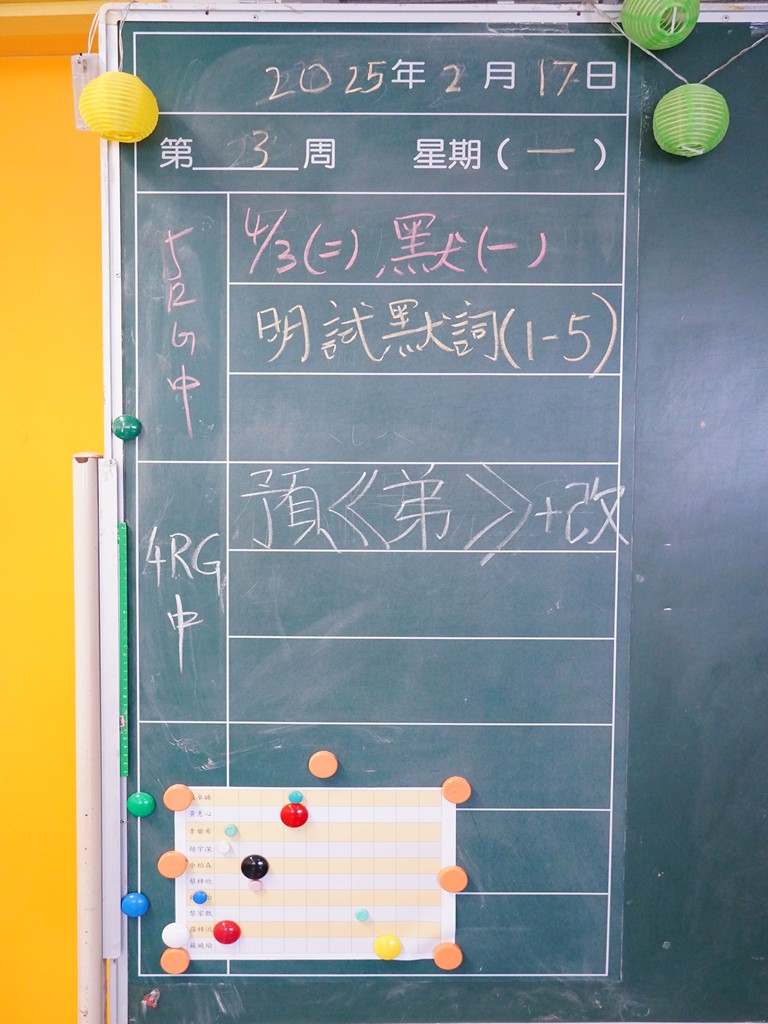 2025年2月17日
第 3 周 星期(一)
5RG中
4/3(二)、默(一)
明試默詞(1-5)
4RG中
預《弟》+改